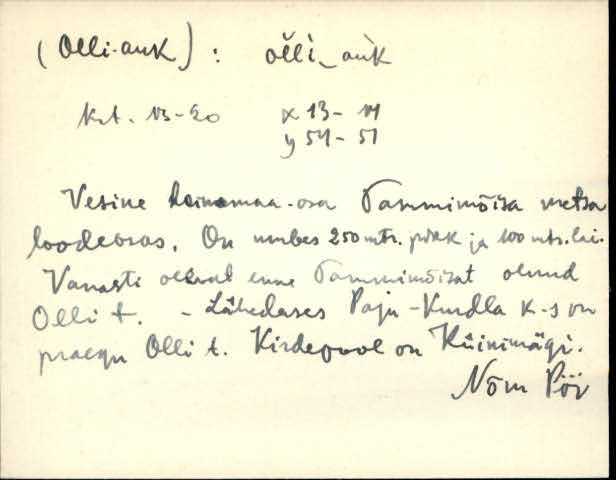 (Olli-auk) : ŏlli_auk
krt. 13-20 x 13 - 14
y 54 - 51
Vesine heinamaa-osa Tammimõisa metsa
loodeosas. On umbes 250 mtr. pikk ja 100 mtr. lai.
Vanasti olevat enne Tammimõisat olnud
Olli t. - Lähedases Paju-Kurdla k-s on
praegu Olli t. Kirdepool on Küinimägi.
Nõm Pöi